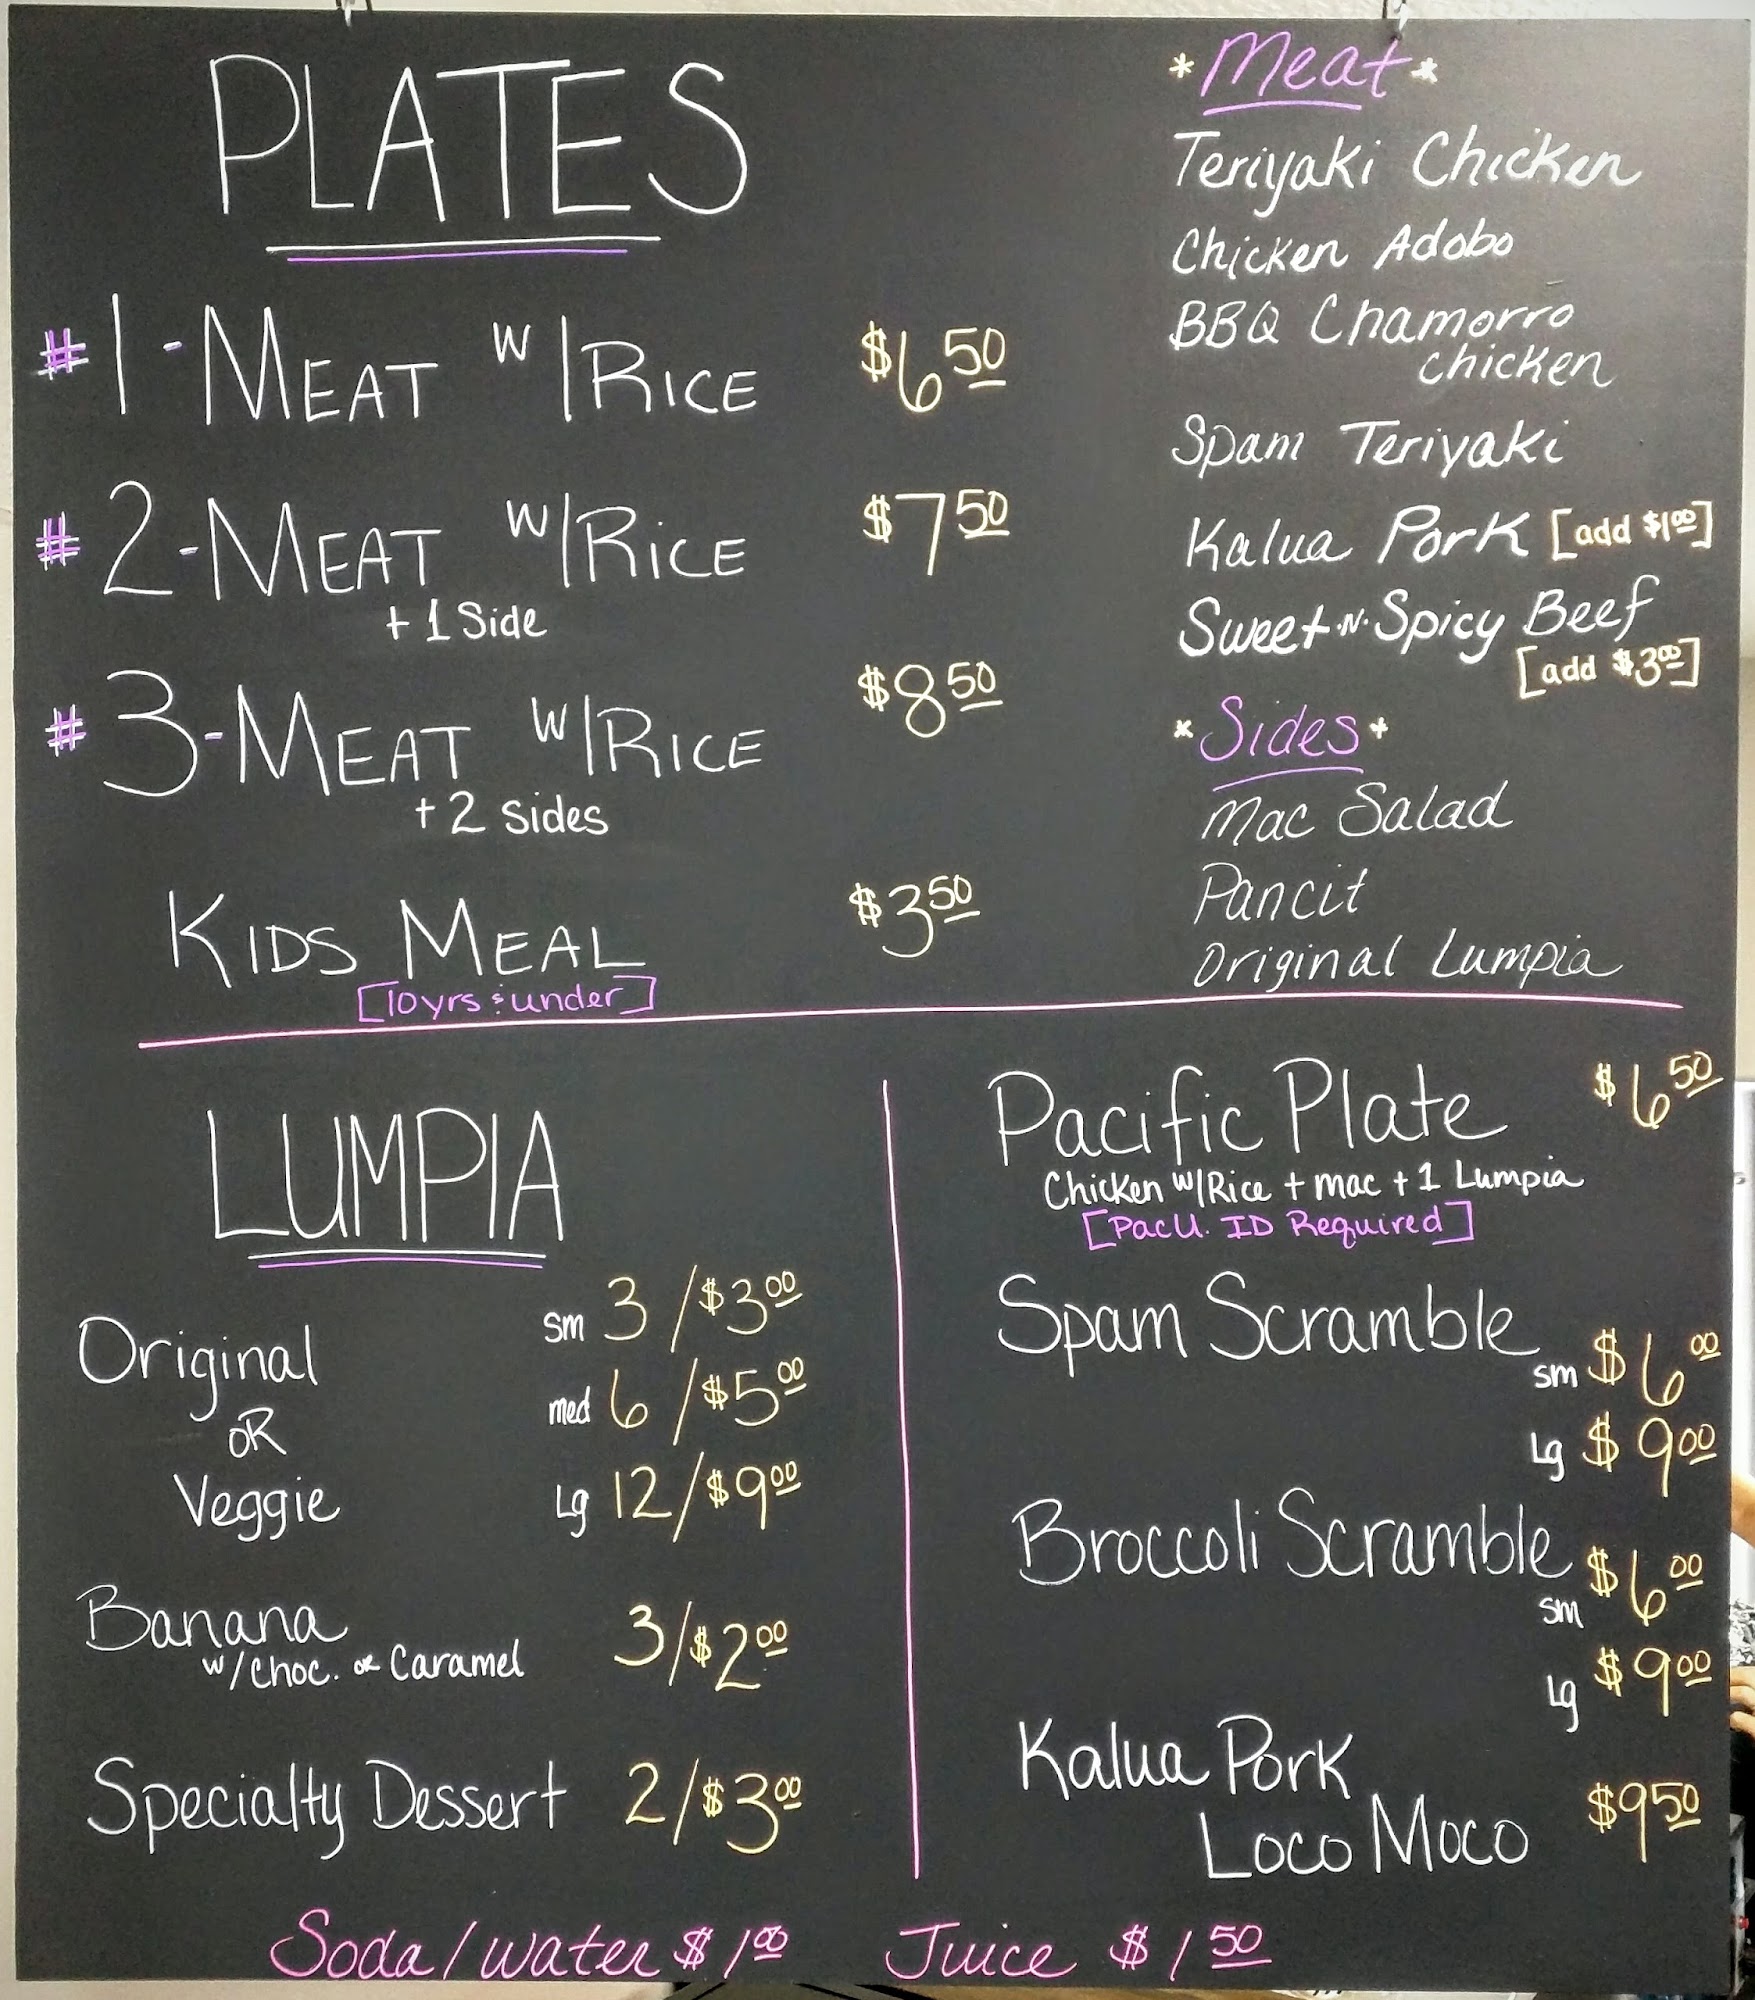 PLATES
#1-MEAT W/RICE $6 50
#2-MEAT W/RICE $7 50
+ 1 Side
#3-MEAT W/RICE $8 50
+ 2 Sides
KIDS MEAL $3 50
[10yrs & under]
*Meat*
Teriyaki Chicken
Chicken Adobo
BBQ Chamorro
chicken
Spam Teriyaki
Kalua Pork [add $1 00]
Sweet·N·Spicy Beef
[add $3 00]
*Sides*
Mac Salad
Pancit
Original Lumpia
LUMPIA
Original
OR
Veggie
sm 3/$3 00
med 6/$5 00
Lg 12/$9 00
Banana 3/$2 00
w/choc. or Caramel
Specialty Dessert 2/$3 00
Pacific Plate $6 50
Chicken W/Rice + mac + 1 Lumpia
[PacU. ID Required]
Spam Scramble
sm $6 00
Lg $9 00
Broccoli Scramble
sm $6 00
Lg $9 00
Kalua Pork
Loco Moco $9 50
Soda/water $1 00 Juice $1 50